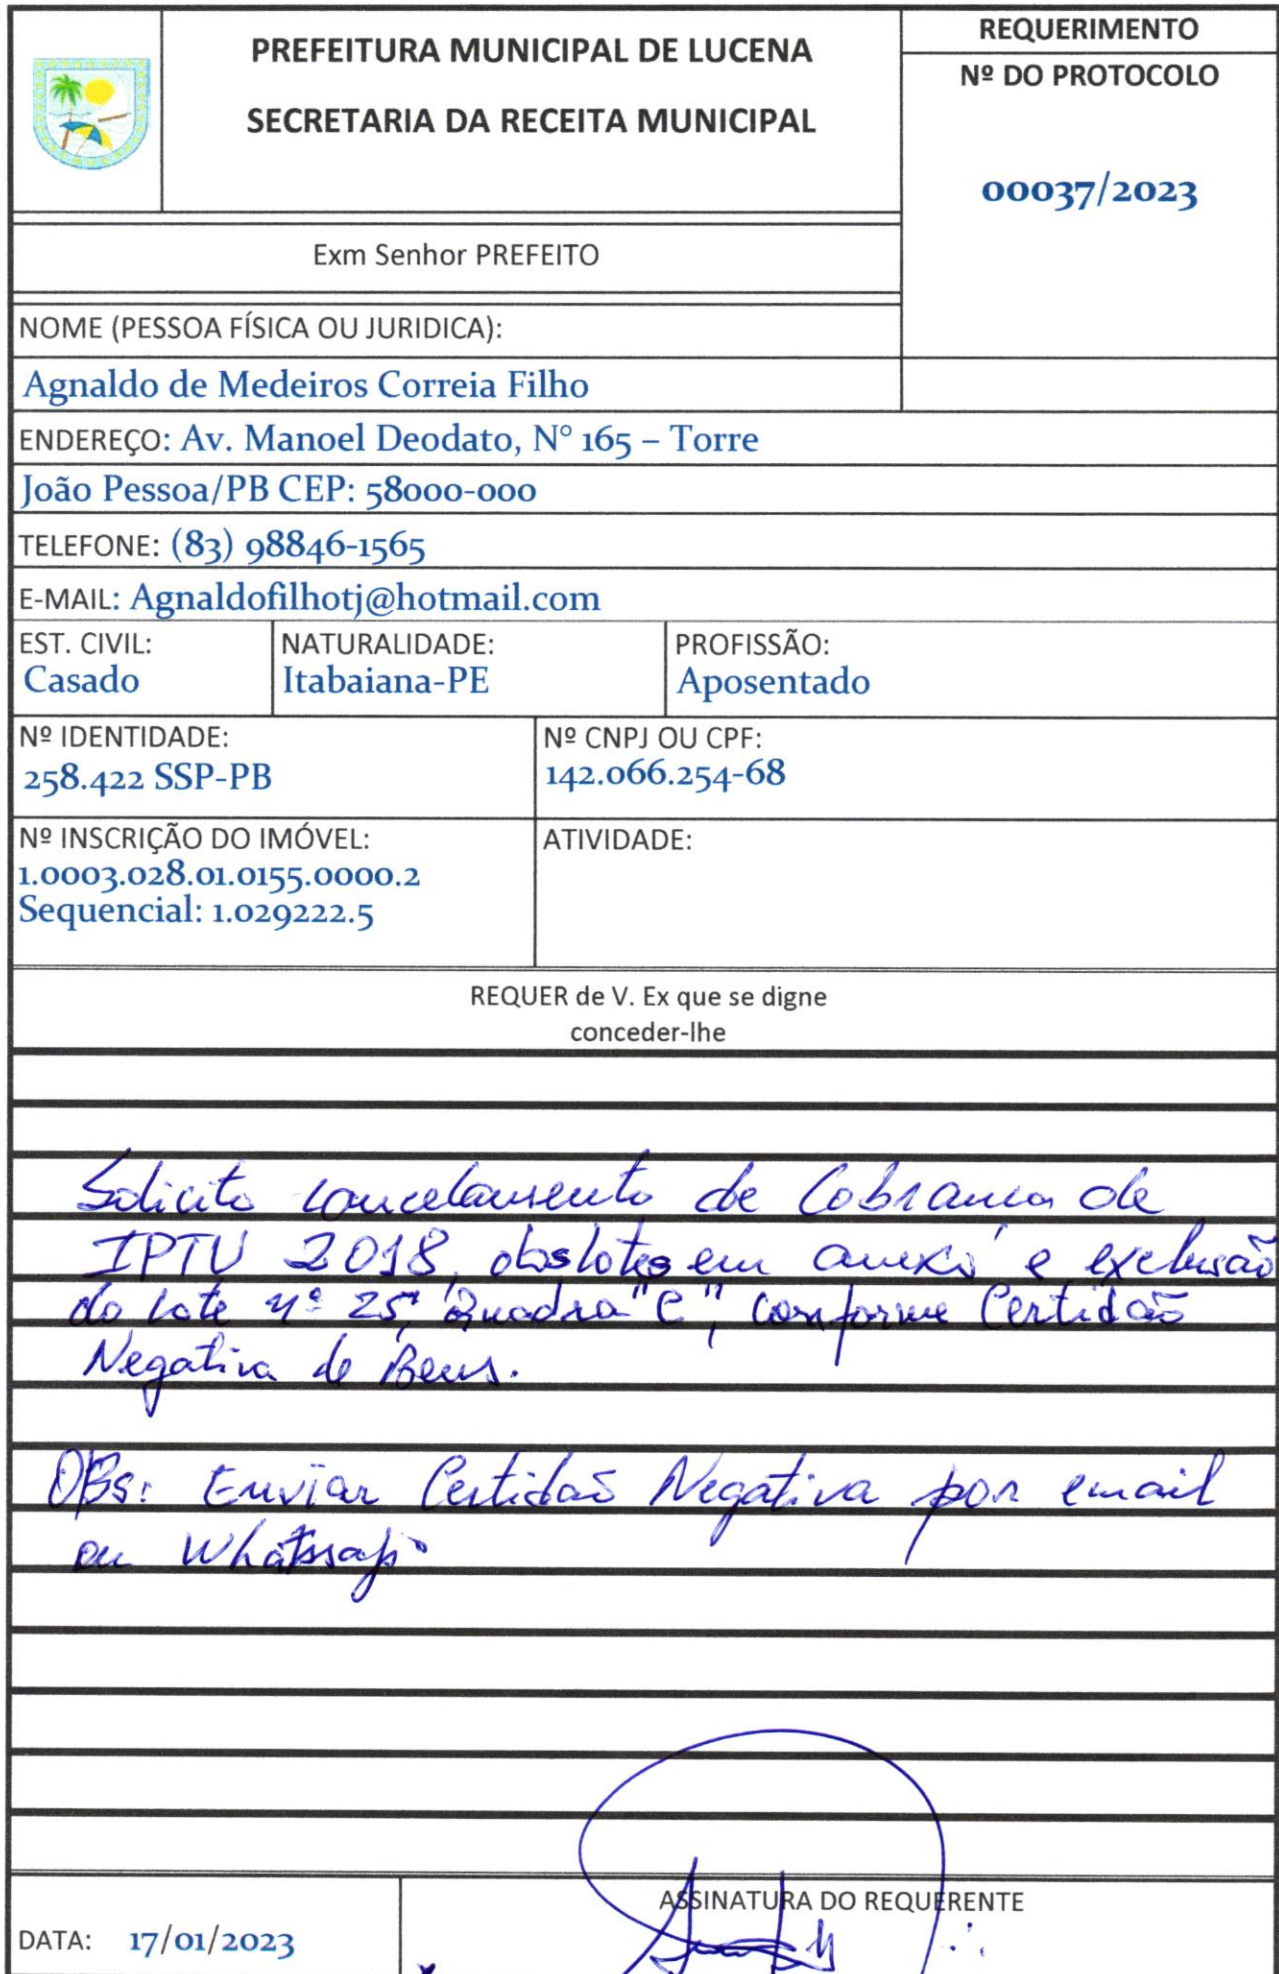 PREFEITURA MUNICIPAL DE LUCENA
SECRETARIA DA RECEITA MUNICIPAL
REQUERIMENTO
Nº DO PROTOCOLO
00037/2023
Exm Senhor PREFEITO
NOME (PESSOA FÍSICA OU JURIDICA):
Agnaldo de Medeiros Correia Filho
ENDEREÇO: Av. Manoel Deodato, N° 165 – Torre
João Pessoa/PB CEP: 58000-000
TELEFONE: (83) 98846-1565
E-MAIL: Agnaldofilhotj@hotmail.com
EST. CIVIL:
Casado
NATURALIDADE:
Itabaiana-PE
PROFISSÃO:
Aposentado
Nº IDENTIDADE:
258.422 SSP-PB
Nº CNPJ OU CPF:
142.066.254-68
Nº INSCRIÇÃO DO IMÓVEL:
1.0003.028.01.0155.0000.2
Sequencial: 1.029222.5
ATIVIDADE:
REQUER de V. Ex que se digne
conceder-lhe
Solicito cancelamento de Cobranca de
IPTU 2018, dos lotes em anexo e exclusão
do lote nº 25, Quadra "C", conforme Certidão
Negativa de Bens.
OBs: Enviar Certidão Negativa por email
ou Whatssap.
DATA: 17/01/2023
ASSINATURA DO REQUERENTE